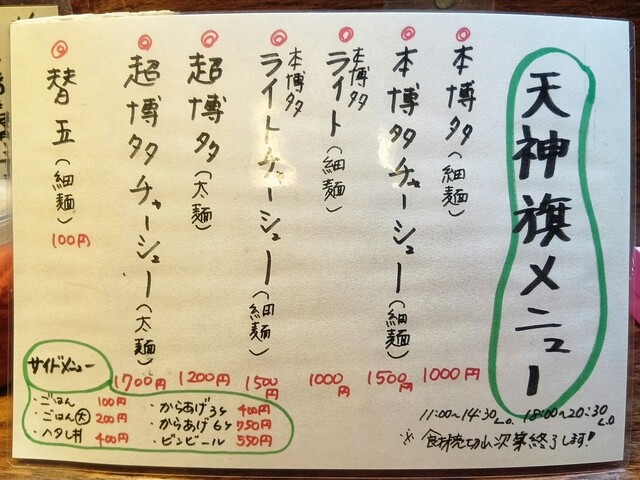 天神旗メニュー
◎本博タ(細麺) 1000円
◎本博タチャーシュー(細麺) 1500円
◎本博タライト(細麺) 1000円
◎本博タライトチャーシュー(細麺) 1500円
◎超博タ(太麺) 1200円
◎超博タチャーシュー(太麺) 1700円
◎替玉(細麺) 100円
サイドメニュー
・ごはん 100円
・ごはん大 200円
・ハタレ丼 400円
・からあげ3ヶ 400円
・からあげ6ヶ 750円
・ビンビール 550円
11:00~14:30 L.O. 18:00~20:30 L.O
※食材売切れ次第終了します!